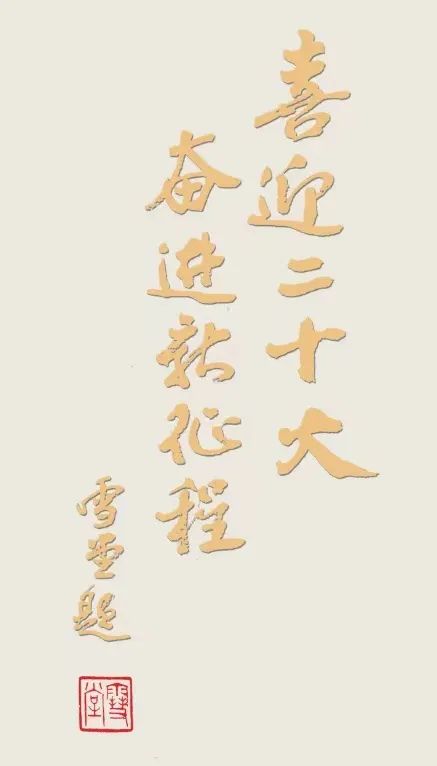 喜迎二十大
奋进新征程
雪堂题
雪堂